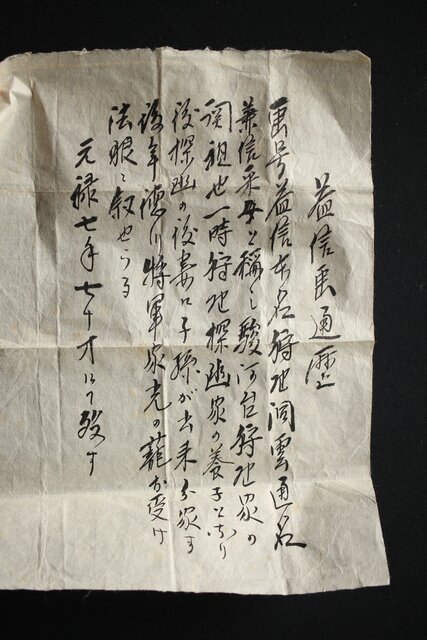 益信画通歴
画号益信本名狩野洞雲通名
兼信采女と称し駿河台狩野家の
開祖也一時狩野探幽家の養子となり
後探幽の後妻に子孫が出来分家す
後年徳川将軍家光の寵が受け
法眼に叙せらる
元禄七年七十才にて歿す